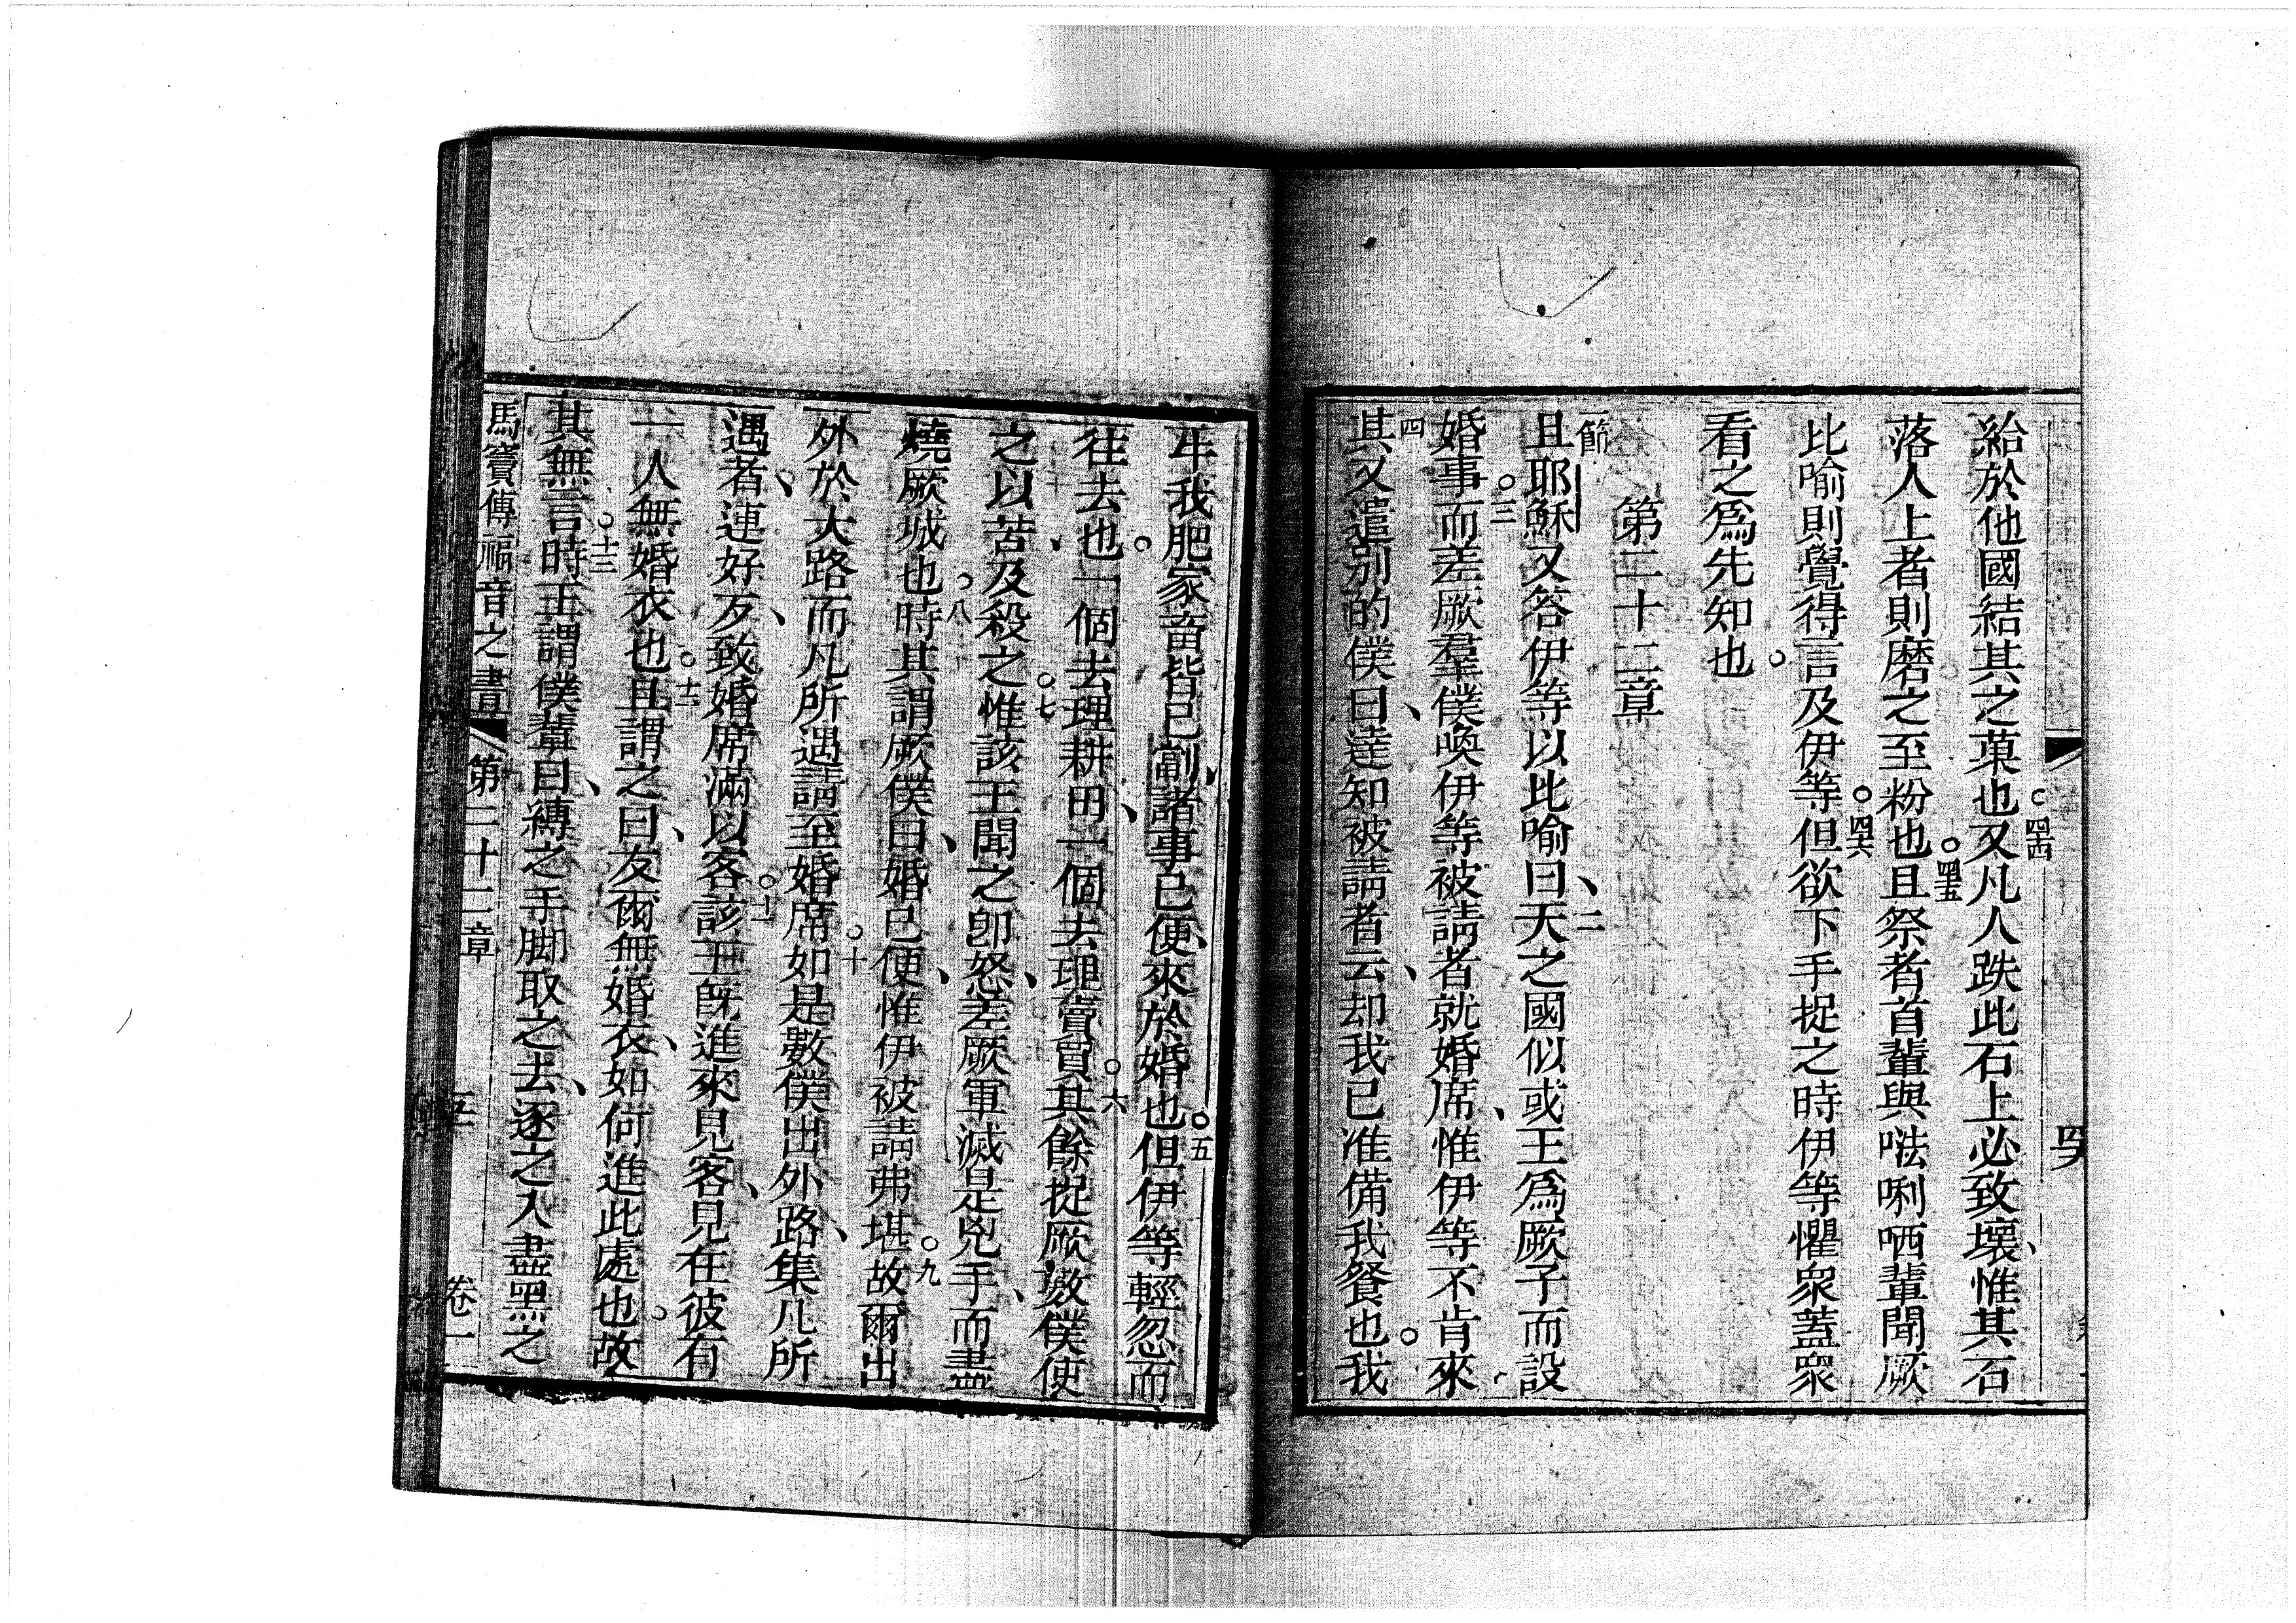 給於他國結其之菓也○四古又凡人跌此石上必致壞、惟其石
落人上者則磨之至粉也○四五且祭者首輩與𠵽唎哂輩聞厥
比喻則覺得言及伊等○四六但欲下手捉之時伊等懼衆蓋衆
看之爲先知也○
第二十二章
一節
且耶穌又答伊等以此喻曰、二天之國似或王爲厥子而設
婚事○三而差厥羣僕喚伊等被請者就婚席、惟伊等不肯來
四其又遣別的僕曰、達知被請者云、却我已准備我餐也○我
牛我肥家畜皆已劏、諸事已便、來於婚也○五但伊等輕忽而
往去也○一個去理耕田、一個去理賣買○六其餘捉厥僕使
之以苦、及殺之○七惟該王聞之卽怒、差厥軍滅是兇手、而盡
燒厥城也○八時其謂厥僕曰、婚已便、惟伊被請弗堪○九故爾出
外於大路而凡所遇請至婚席○十如是數僕出外路、集凡所
遇者、連好歹、致婚席滿以客○十一該王旣進來見客、見在彼有
一人無婚衣也○十二且謂之曰、友爾無婚衣、如何進此處也○故
其無言○十三時王謂僕輩曰、縛之手脚取之去、逐之入盡黑之
馬竇傳福音之書 第二十二章 五 卷一